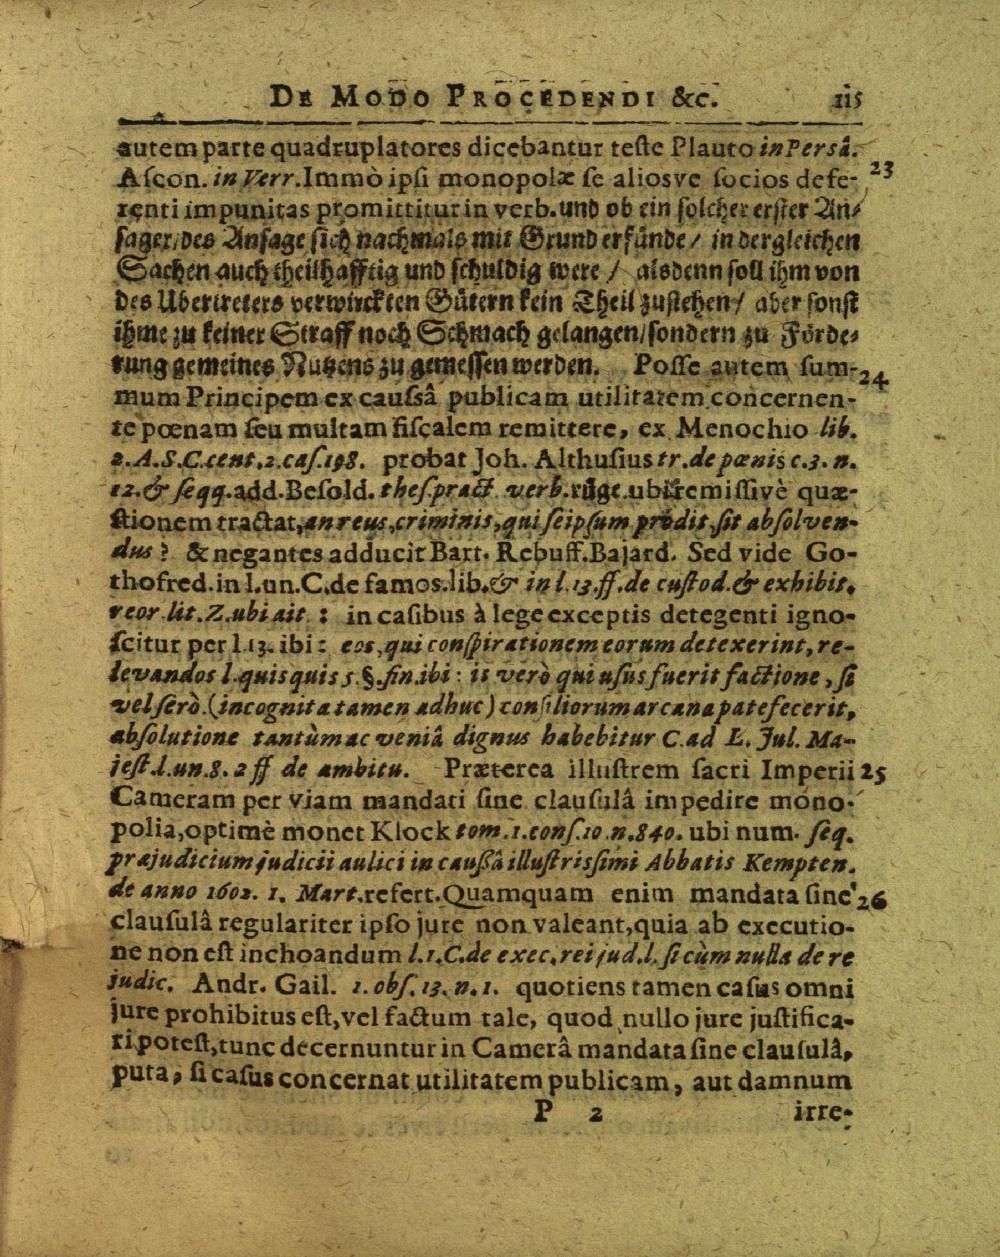 DE MODO PROCEDENDI &c. 115
autem parte quadruplatores dicebantur teste Plauto in Persâ.
Ascon. in Verr. Immò ipsi monopolæ se aliosve socios defe- 23
renti impunitas promittitur in verb. und ob ein solcher erster An/
sager/des Ansage sich nachmals mit Grund erfünde/ in dergleichen
Sachen auch theilhafftig und schuldig were / alsdenn soll ihm von
des Ubertreters verwirckten Gütern kein Theil zustehen/ aber sonst
ihme zu keiner Straff noch Schmach gelangen/sondern zu Förde/
rung gemeines Nutzens zu gemessen werden. Posse autem sum- 24
mum Principem ex causâ publicam utilitatem concernen-
te pœnam seu multam fiscalem remittere, ex Menochio lib.
2. A.S.C.cent.2.cas.198. probat Joh. Althusius tr. de pœnis c.3. n.
12.& seqq. add. Besold. thes.pract. verb. rüge. ubi remissivè quæ-
stionem tractat, an reus, criminis, qui seipsum prodit, sit absolven-
dus? & negantes adducit Bart. Rebuff. Bajard. Sed vide Go-
thofred. in l.un.C.de famos.lib.& in l.13.ff.de custod.& exhibit.
reor.lit.Z.ubi ait : in casibus à lege exceptis detegenti igno-
scitur per l.13. ibi: eos, qui conspirationem eorum detexerint, re-
levandos l.quisquis 5.§.fin.ibi: is verò qui usus fuerit factione, si
vel serò.(incognita tamen adhuc) consiliorum arcana patefecerit,
absolutione tantùm ac veniâ dignus habebitur C.ad L. Jul. Ma-
jest.l.un.§. 2 ff de ambitu. Præterea illustrem sacri Imperii 25
Cameram per viam mandati sine clausulâ impedire mono-
polia, optimè monet Klock tom.1.cons.10.n.840. ubi num. seq.
præjudicium judicii aulici in caussâ illustrissimi Abbatis Kempten.
de anno 1602. 1. Mart. refert. Quamquam enim mandata sine 26
clausulâ regulariter ipso jure non valeant, quia ab executio-
ne non est inchoandum l.1.C.de exec.rei jud.l.si cùm nulla de re
judic. Andr. Gail. 1. obs. 13. n.1. quotiens tamen casus omni
jure prohibitus est, vel factum tale, quod nullo jure justifica-
ri potest, tunc decernuntur in Camerâ mandata sine clausulâ,
puta, si casus concernat utilitatem publicam, aut damnum
P 2 irre-